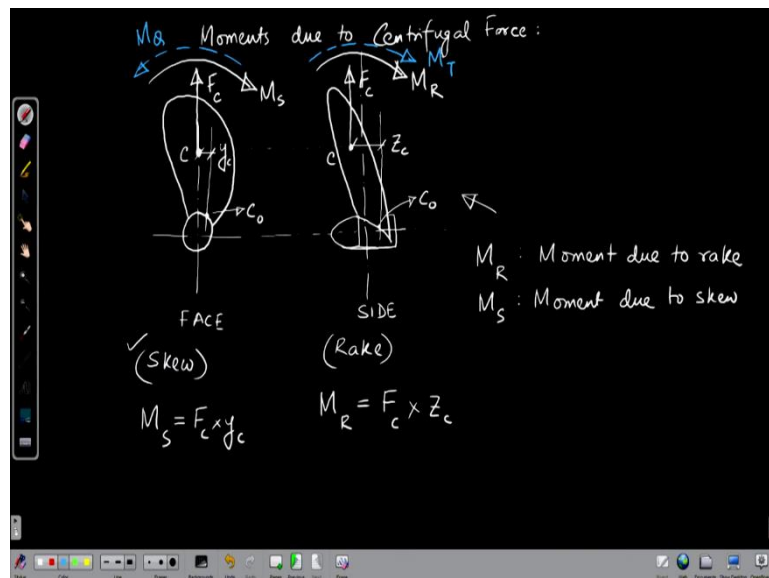 M_Q Moments due to Centrifugal Force :
F_c M_S
F_c M_T
M_R
C y_c
C Z_c
C_0
C_0
M_R : Moment due to rake
M_S : Moment due to skew
FACE
SIDE
✓(Skew)
(Rake)
M_S = F_c × y_c
M_R = F_c × Z_c